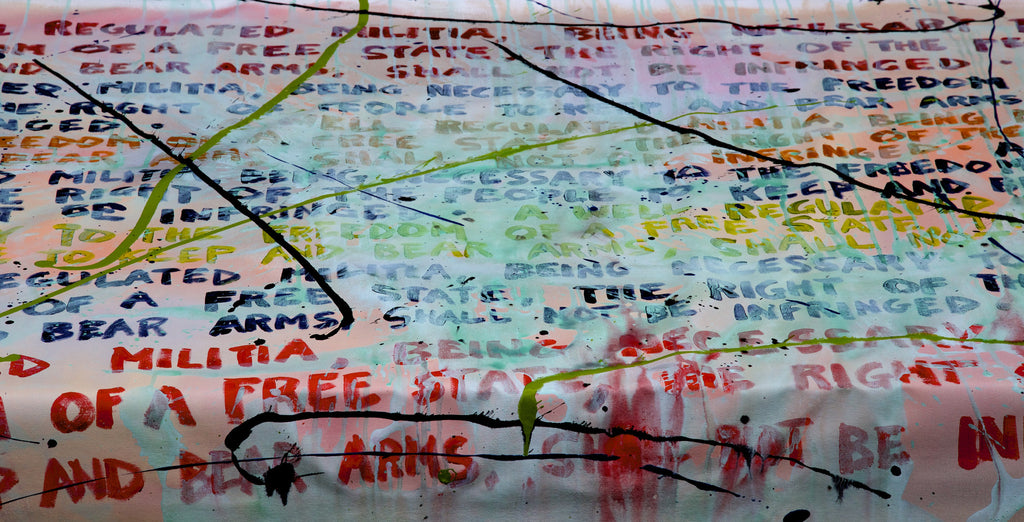 REGULATED MILITIA, BEING NECESSARY
OF A FREE STATE, THE RIGHT OF THE
AND BEAR ARMS, SHALL NOT BE INFRINGED
MILITIA, BEING NECESSARY TO THE FREEDOM
THE RIGHT OF PEOPLE TO AND BEAR ARMS
A WELL REGULATED MILITIA, BEING
OF A FREE STATE THE RIGHT OF THE
BEAR ARMS SHALL NOT BE INFRINGED.
MILITIA BEING NECESSARY TO THE FREEDOM
RIGHT OF THE PEOPLE TO KEEP AND
BE INFRINGED A WELL REGULATED
TO THE FREEDOM OF A FREE STATE
TO KEEP AND BEAR ARMS SHALL NOT
REGULATED MILITIA, BEING NECESSARY TO
OF A FREE STATE, THE RIGHT OF
BEAR ARMS, SHALL NOT BE INFRINGED
MILITIA, BEING NECESSARY
OF A FREE STATE, THE RIGHT
AND BEAR ARMS, NOT BE IN